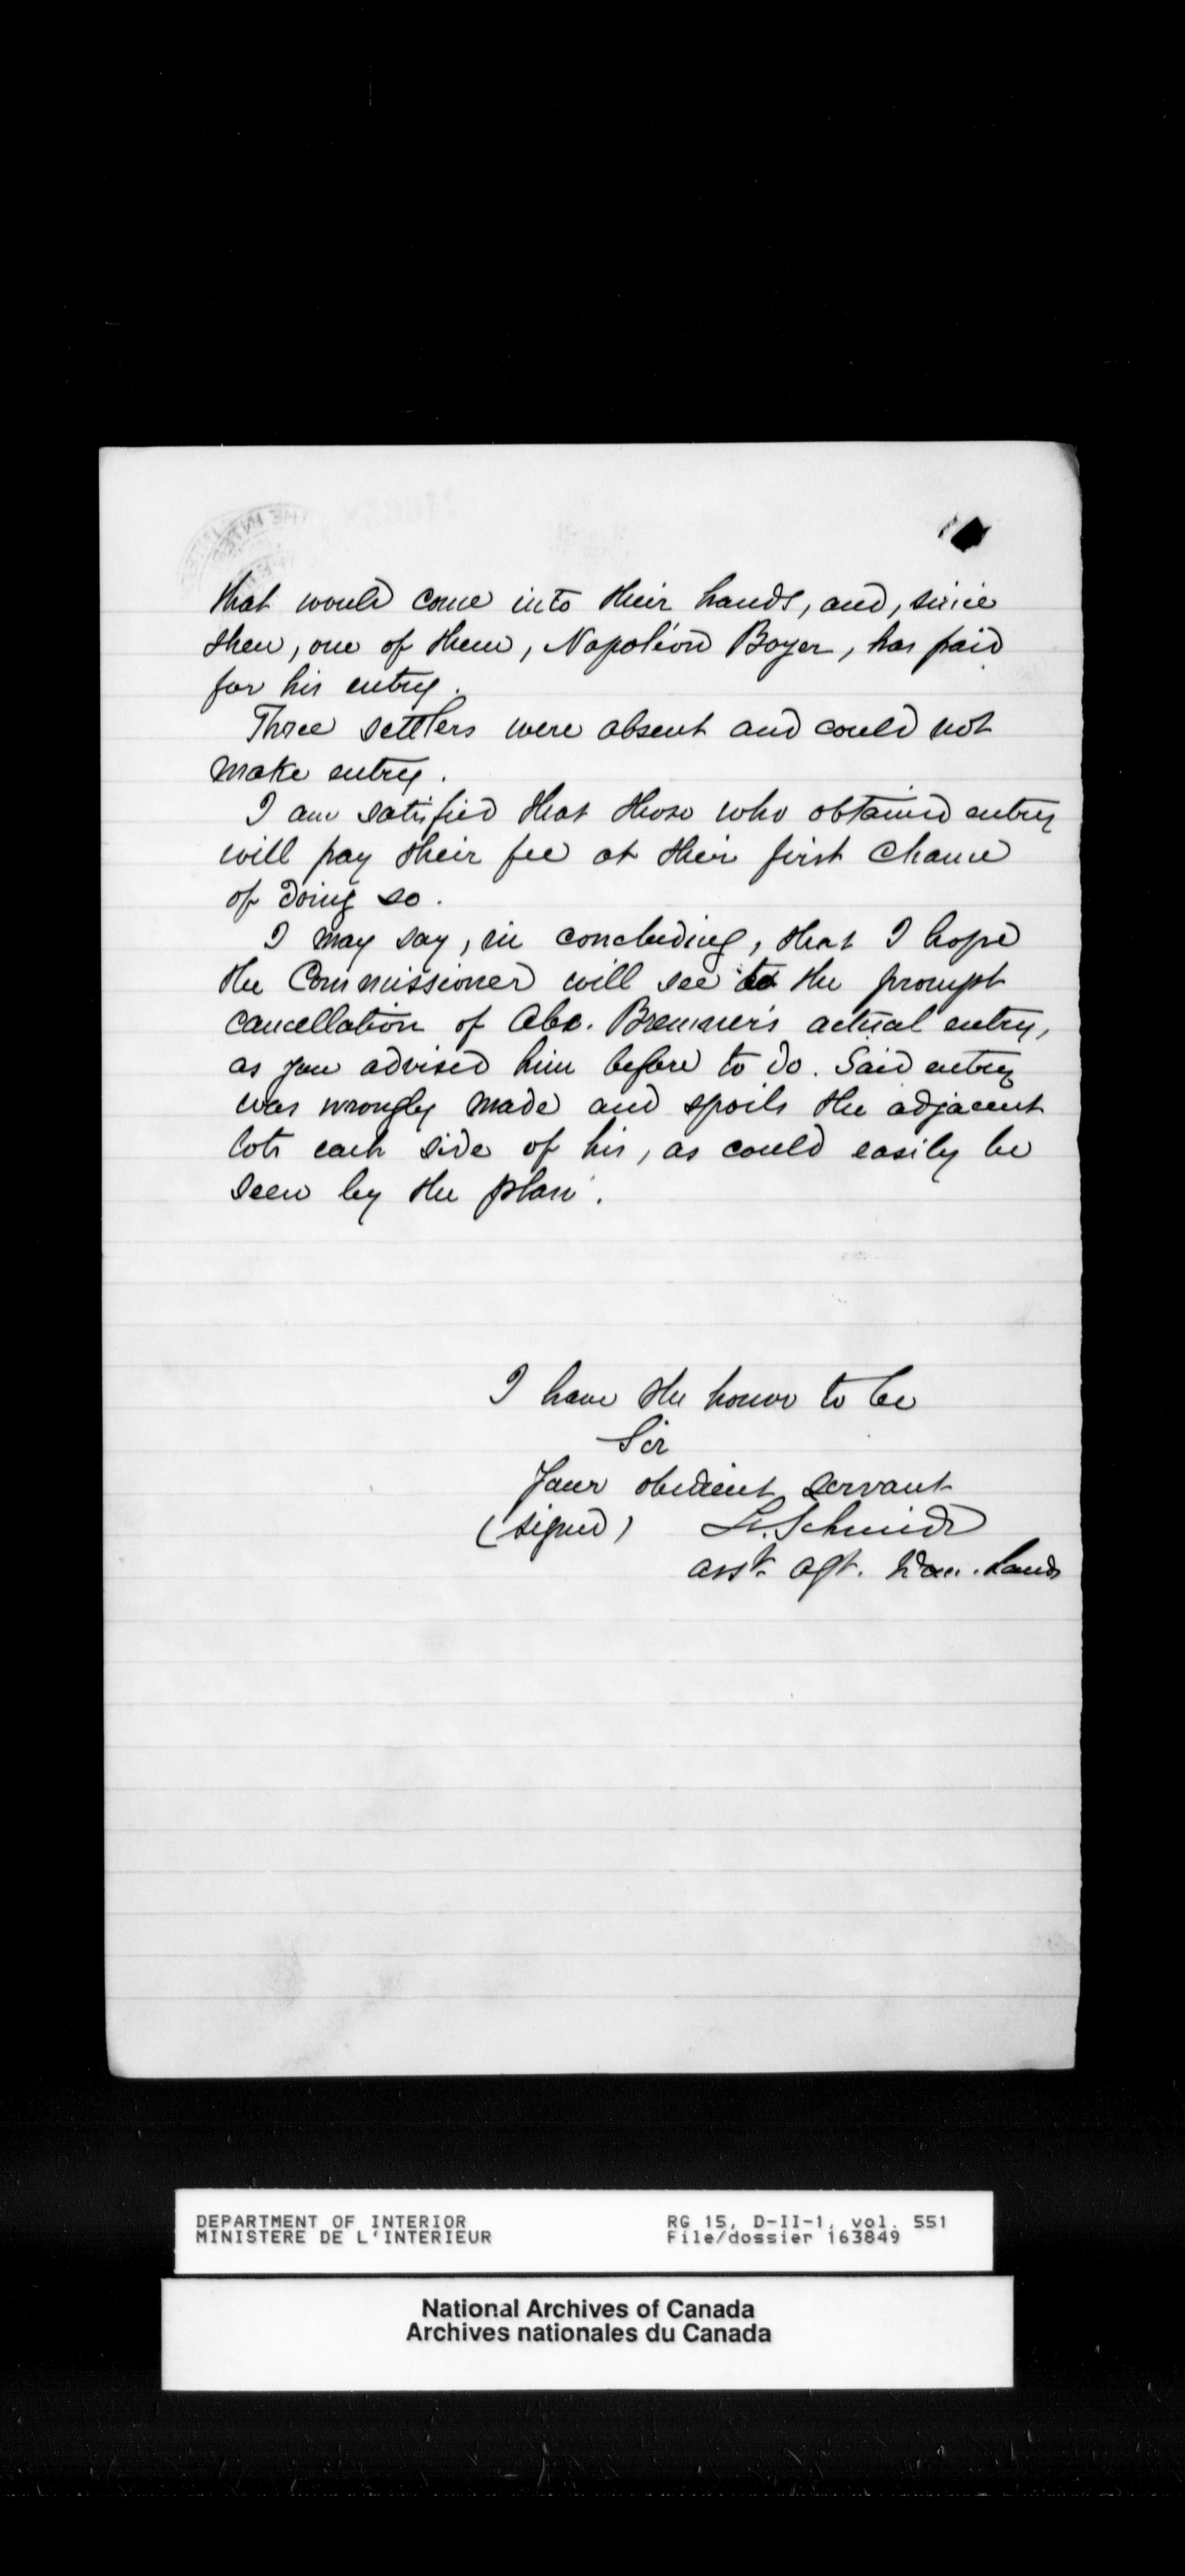 that would come into their hands, and, since
then, one of them, Napoléon Boyer, has paid
for his entry.
Three settlers were absent and could not
make entry.
I am satisfied that those who obtained entry
will pay their fee at their first chance
of doing so.
I may say, in concluding, that I hope
the Commissioner will see to the prompt
cancellation of Alex. Bremner's actual entry,
as you advised him before to do. Said entry
was wrongly made and spoils the adjacent
lots each side of his, as could easily be
seen by the plan.
I have the honor to be
Sir
Your obedient servant
(signed) L. Schmidt
asst. agt. Dom. Lands
DEPARTMENT OF INTERIOR
MINISTERE DE L'INTERIEUR
RG 15, D-II-1, vol. 551
File/dossier 163849
National Archives of Canada
Archives nationales du Canada